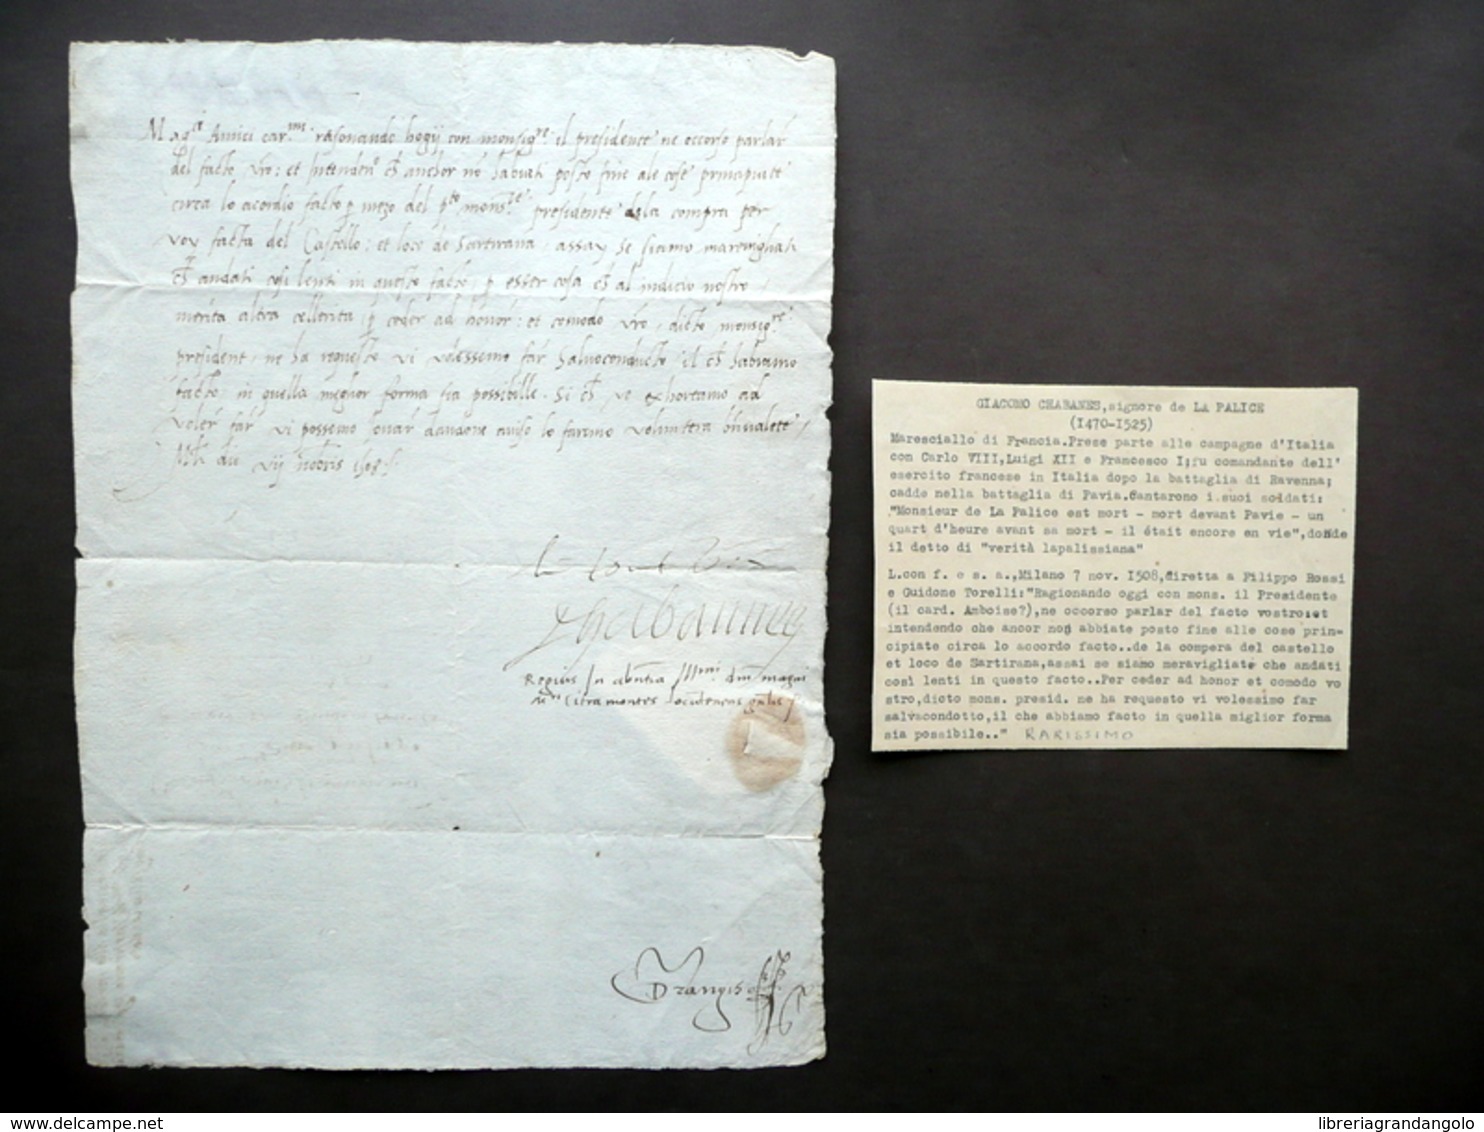 Mag.ci Amici car.mi rasonando hogij con monsig.re il presidente ne occorso parlar
del facto vro: et intenden.o ch anchor nõ habiati posto fine ale cose principiate
circa lo acordio facto p mezo del p.to mons.re presidente dela compra per
voy facta del Castello: et loco de Sartirana, assay se siamo maravigliati
ch andati cosi lenti in questo facto p esser cosa ch al indicio nostro
merita altra cellerita p ceder ad honor: et comodo vro, dicto monsig.re
president, ne ha requesto vi volessemo far Salvoconducto, il ch habiamo
facto, in quella meglior forma sia possibille. Si ch ve exhortamo ad
voler far vi possemo
aviso lo faremo voluntera
vij nobris 1508.
Chabannes
Regius In
Citramontes locutenens gnlis
GIACOMO CHABANES,signore de LA PALICE
(1470-1525)
Maresciallo di Francia.Prese parte alle campagne d'Italia
con Carlo VIII,Luigi XII e Francesco I;fu comandante dell'
esercito francese in Italia dopo la battaglia di Ravenna;
cadde nella battaglia di Pavia.Cantarono i suoi soldati:
"Monsieur de La Palice est mort - mort devant Pavie - un
quart d'heure avant sa mort - il était encore en vie",donde
il detto di "verità lapalissiana"
L.con f. e s. a.,Milano 7 nov. 1508,diretta a Filippo Rossi
e Guidone Torelli:"Ragionando oggi con mons. il Presidente
(il card. Amboise?),ne occorso parlar del facto vostro:et
intendendo che ancor non abbiate posto fine alle cose prin-
cipiate circa lo accordo facto..de la compera del castello
et loco de Sartirana,assai se siamo meravigliate che andati
così lenti in questo facto..Per ceder ad honor et comodo vo
stro,dicto mons. presid. ne ha requesto vi volessimo far
salvacondotto,il che abbiamo facto in quella miglior forma
sia possibile.." RARISSIMO
libreriagrandangolo